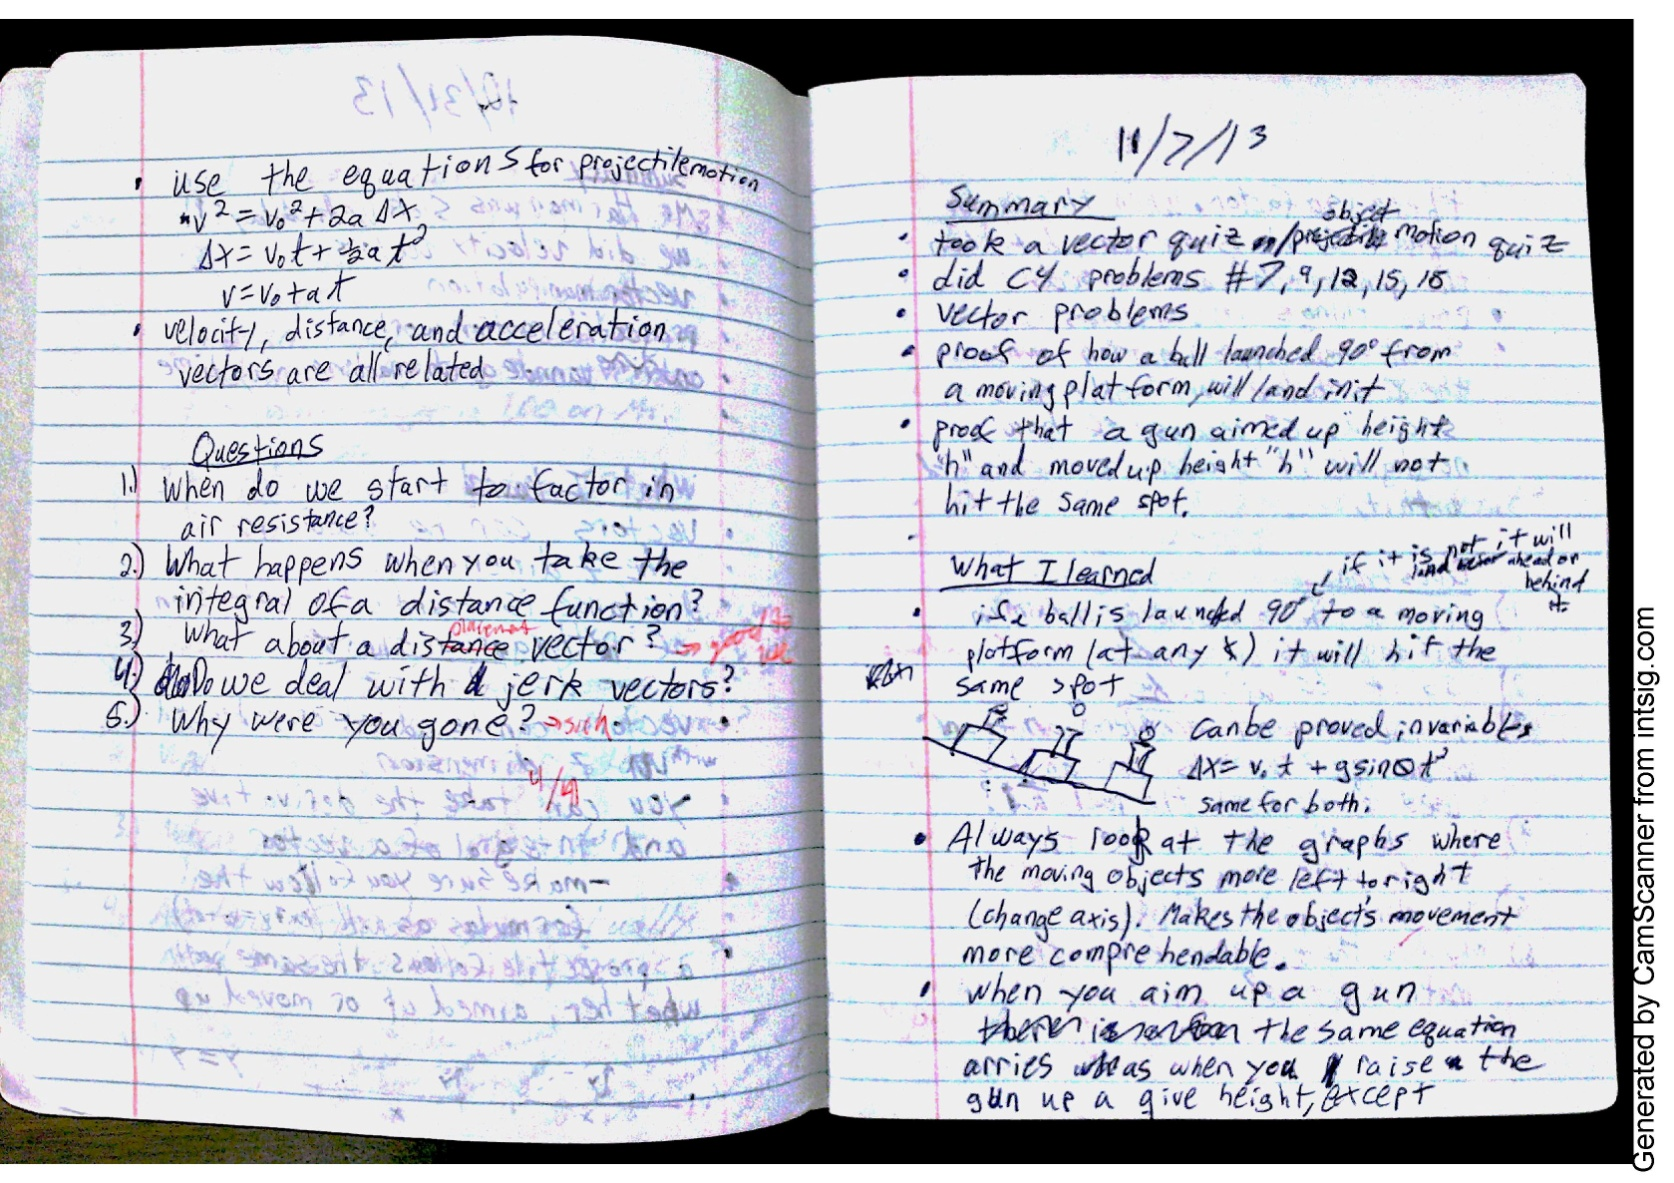 • use the equations for projectile motion
v² = v₀² + 2a Δx
Δx = v₀t + ½at²
v = v₀ + at
• velocity, distance, and acceleration
vectors are all related
Questions
1.) When do we start to factor in
air resistance?
2.) What happens when you take the
integral of a distance function?
placemnt
3.) What about a distance vector? →
4.) Do we deal with jerk vectors?
5.) Why were you gone? → sick
4/4
11/7/13
Summary
object
• took a vector quiz /projectile motion quiz
• did C4 problems #7, 9, 12, 15, 16
• vector problems
• proof of how a ball launched 90° from
a moving platform, will land in it
• proof that a gun aimed up height
"h" and moved up height "h" will not
hit the same spot.
What I learned
if it is not it will
land ahead or
behind
it
• if a ball is launched 90° to a moving
platform (at any ) it will hit the
same spot
can be proved in variables
Δx = v₀t + gsinθt²
same for both.
• Always look at the graphs where
the moving objects move left to right
(change axis). Makes the object's movement
more comprehendable.
• when you aim up a gun
the same equation
arries as when you raise the
gun up a give height, except
Generated by CamScanner from intsig.com